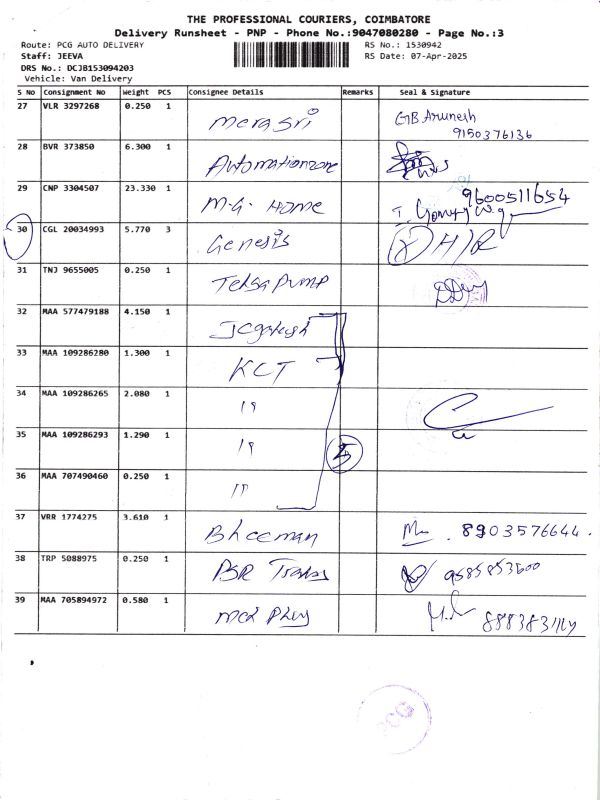 THE PROFESSIONAL COURIERS, COIMBATORE
Delivery Runsheet - PNP - Phone No.:9047080280 - Page No.:3
Route: PCG AUTO DELIVERY RS No.: 1530942
Staff: JEEVA RS Date: 07-Apr-2025
DRS No.: DCJB153094203
Vehicle: Van Delivery
S No Consignment No Weight PCS Consignee Details Remarks Seal & Signature
27 VLR 3297268 0.250 1 Merasri GB Arunesh
9150376136
28 BVR 373850 6.300 1 Automationzone
29 CNP 3304507 23.330 1 M.G. Home 9600511654
30 CGL 20034993 5.770 3 Genesis H/R
31 TNJ 9655005 0.250 1 Teksa Pump
32 MAA 577479188 4.150 1
33 MAA 109286280 1.300 1 KCT
34 MAA 109286265 2.080 1 "
35 MAA 109286293 1.290 1 " 5
36 MAA 707490460 0.250 1 "
37 VRR 1774275 3.610 1 Bheeman 8903576644.
38 TRP 5088975 0.250 1 BSR Trans 9585853600
39 MAA 705894972 0.580 1
PCG